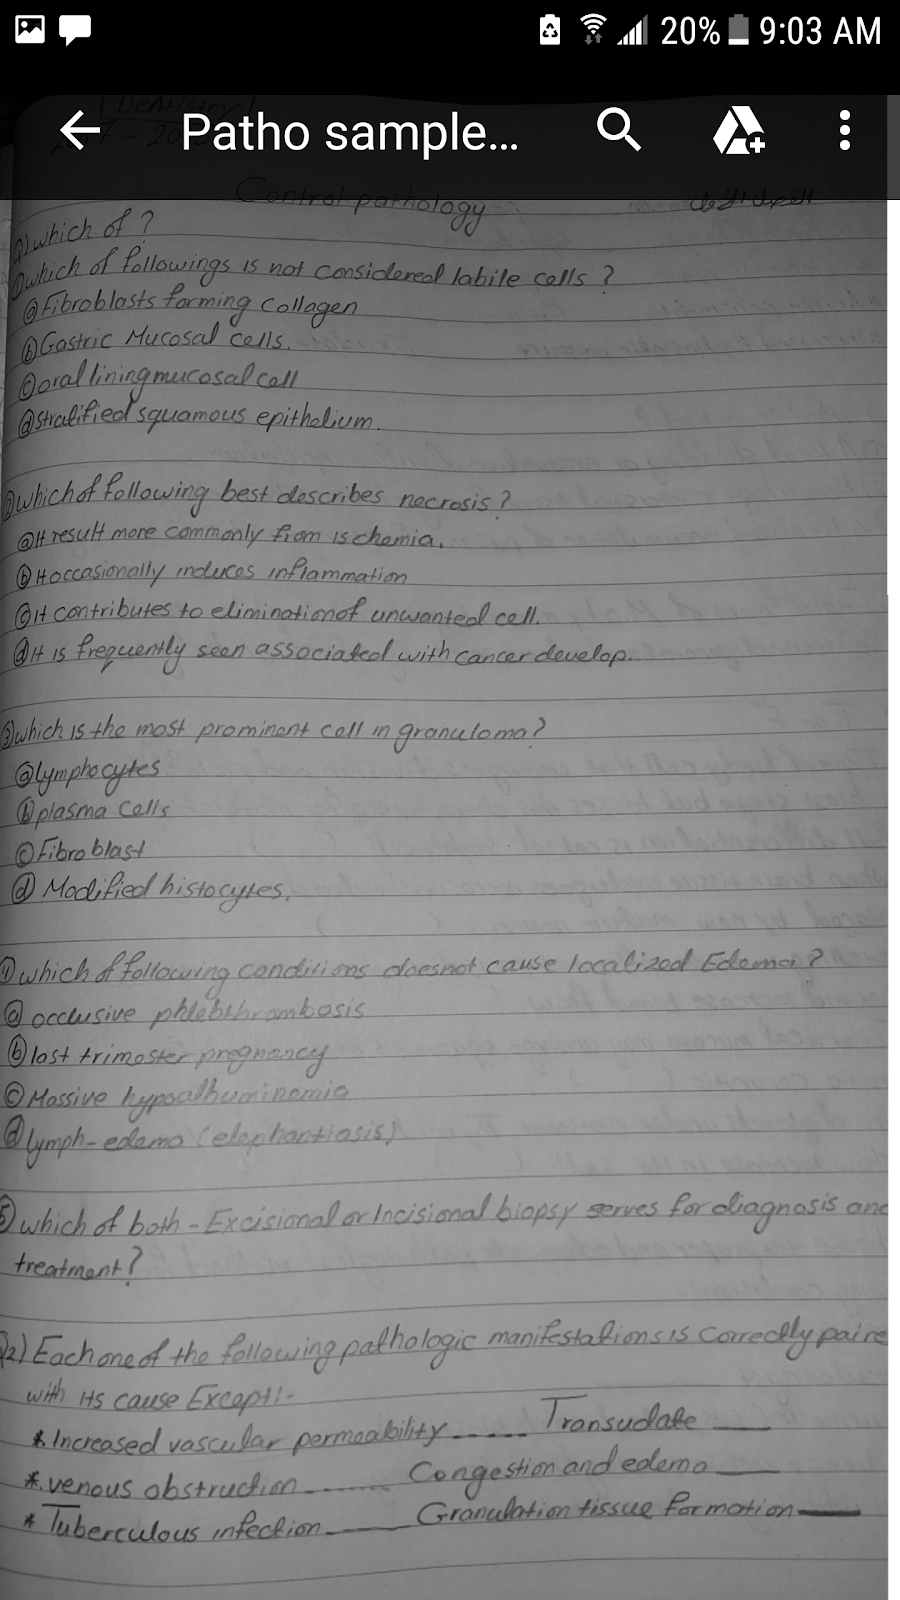 20% 9:03 AM
Patho sample...
[Dentistry]
Control pathology الفصل الاول
Q1) which of ?
① which of followings is not considered labile cells ?
ⓐ Fibroblasts forming collagen
ⓑ Gastric Mucosal cells.
ⓒ oral lining mucosal cell
ⓓ stratified squamous epithelium.
② which of following best describes necrosis ?
ⓐ It result more commonly from ischemia.
ⓑ It occasionally induces inflammation
ⓒ It contributes to elimination of unwanted cell.
ⓓ It is frequently seen associated with cancer develop.
③ which is the most prominent cell in granuloma ?
ⓐ lymphocytes
ⓑ plasma cells
ⓒ Fibroblast
ⓓ Modified histocytes.
④ which of following conditions doesnot cause localized Edema ?
ⓐ occlusive phlebthrombosis
ⓑ last trimester pregnancy
ⓒ Massive hypoalbuminemia
ⓓ lymph-edema (elephantiasis)
⑤ which of both - Excisional or Incisional biopsy serves for diagnosis and
treatment ?
Q2) Each one of the following pathologic manifestations is correctly paire
with its cause Except:-
* Increased vascular permeability ...... Transudate ___
* venous obstruction ........ Congestion and edema ___
* Tuberculous infection ____ Granulation tissue formation ___